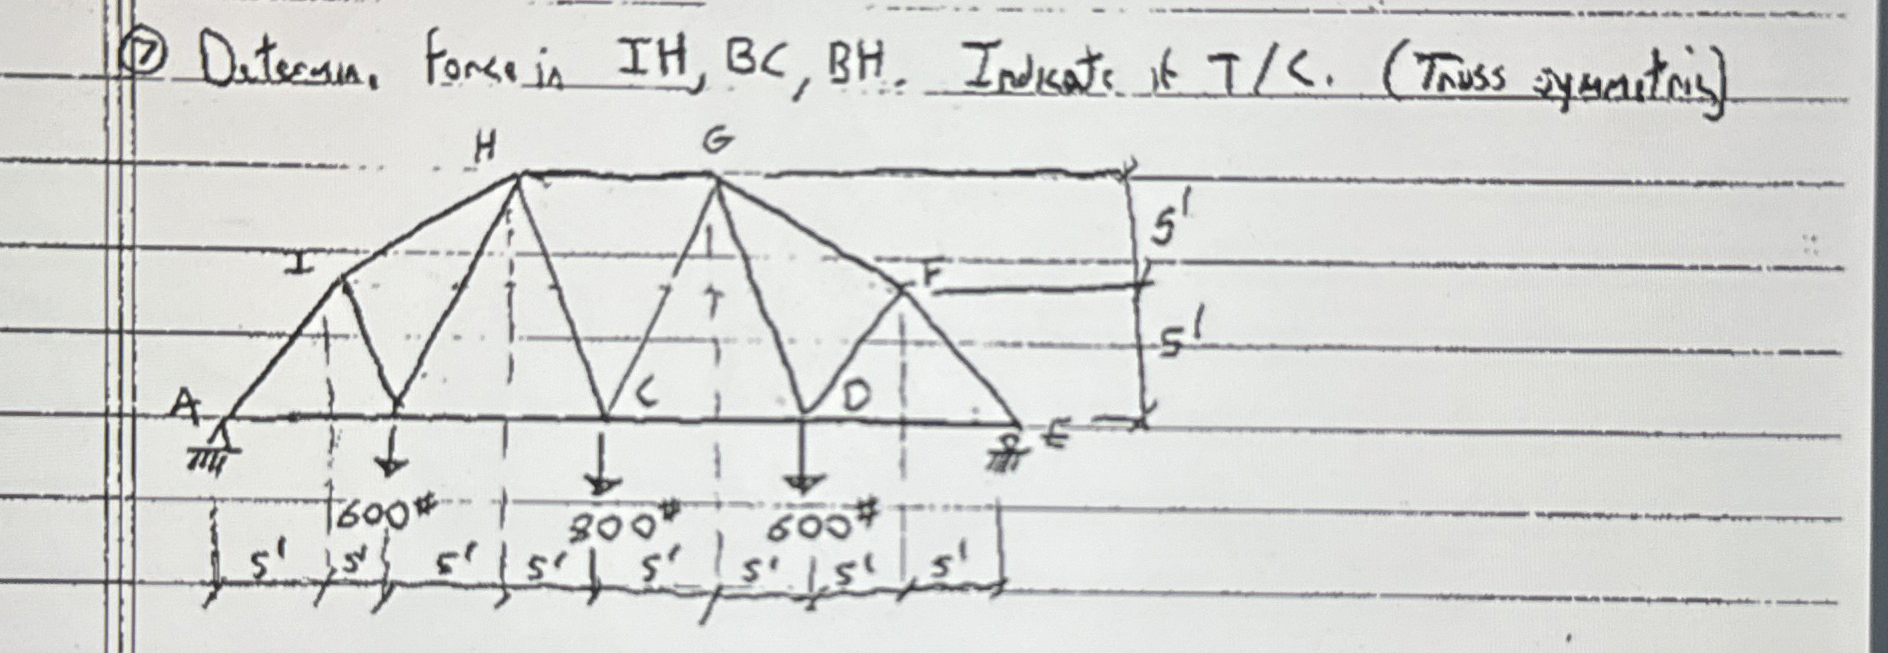 ⑦ Determine force in IH, BC, BH. Indicate if T/C. (Truss symmetric)
H G
5'
I F
5'
A C D
E
600# 800# 600#
5' 5' 5' 5' 5' 5' 5' 5'